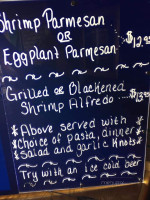 Shrimp Parmesan
OR
Eggplant Parmesan
$12.95
Grilled OR Blackened
Shrimp Alfredo
$13.95
*Above served with*
*choice of pasta, dinner*
*salad and garlic knots*
Try with an ice cold beer